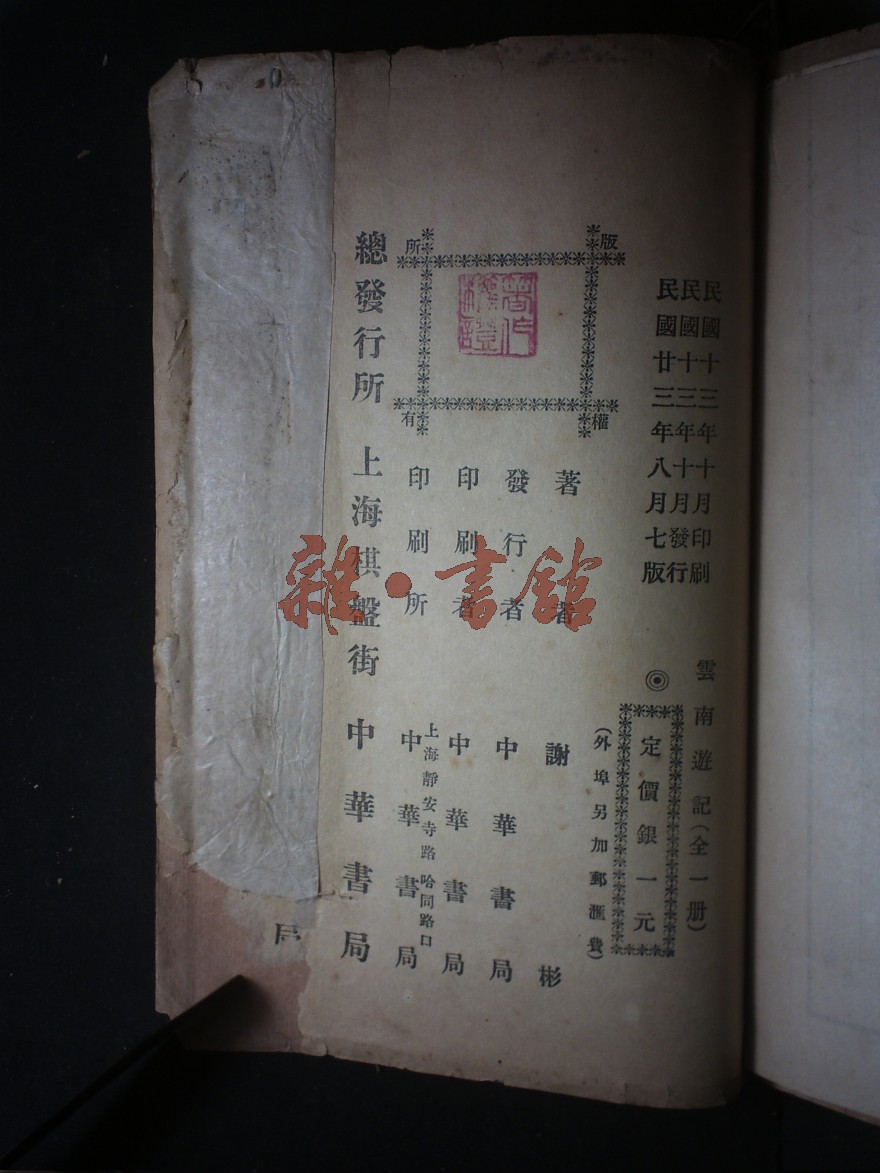 民國十三年十月印刷
民國十三年十月發行
民國廿三年八月七版
雲南遊記(全一册)
◎定價銀一元
(外埠另加郵滙費)
版權所有
著者 謝彬
發行者 中華書局
印刷者 中華書局
上海靜安寺路哈同路口
印刷所 中華書局
總發行所 上海棋盤街 中華書局
局
雜·書館